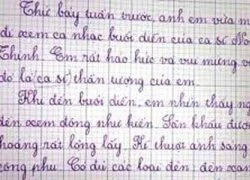 Thứ bảy tuần trước, anh em vừa
đi xem ca nhạc buổi diễn của ca sĩ
Thịnh. Em rất háo hức và vui mừng
đó là ca sĩ thần tượng của em.
Khi đến buổi diễn, em nhìn thấy
đến xem đông như kiến. Sân khấu được
hoàng rất lộng lẫy. Kĩ thuật ánh sáng
công phu. Có đủ các loại đèn: đèn